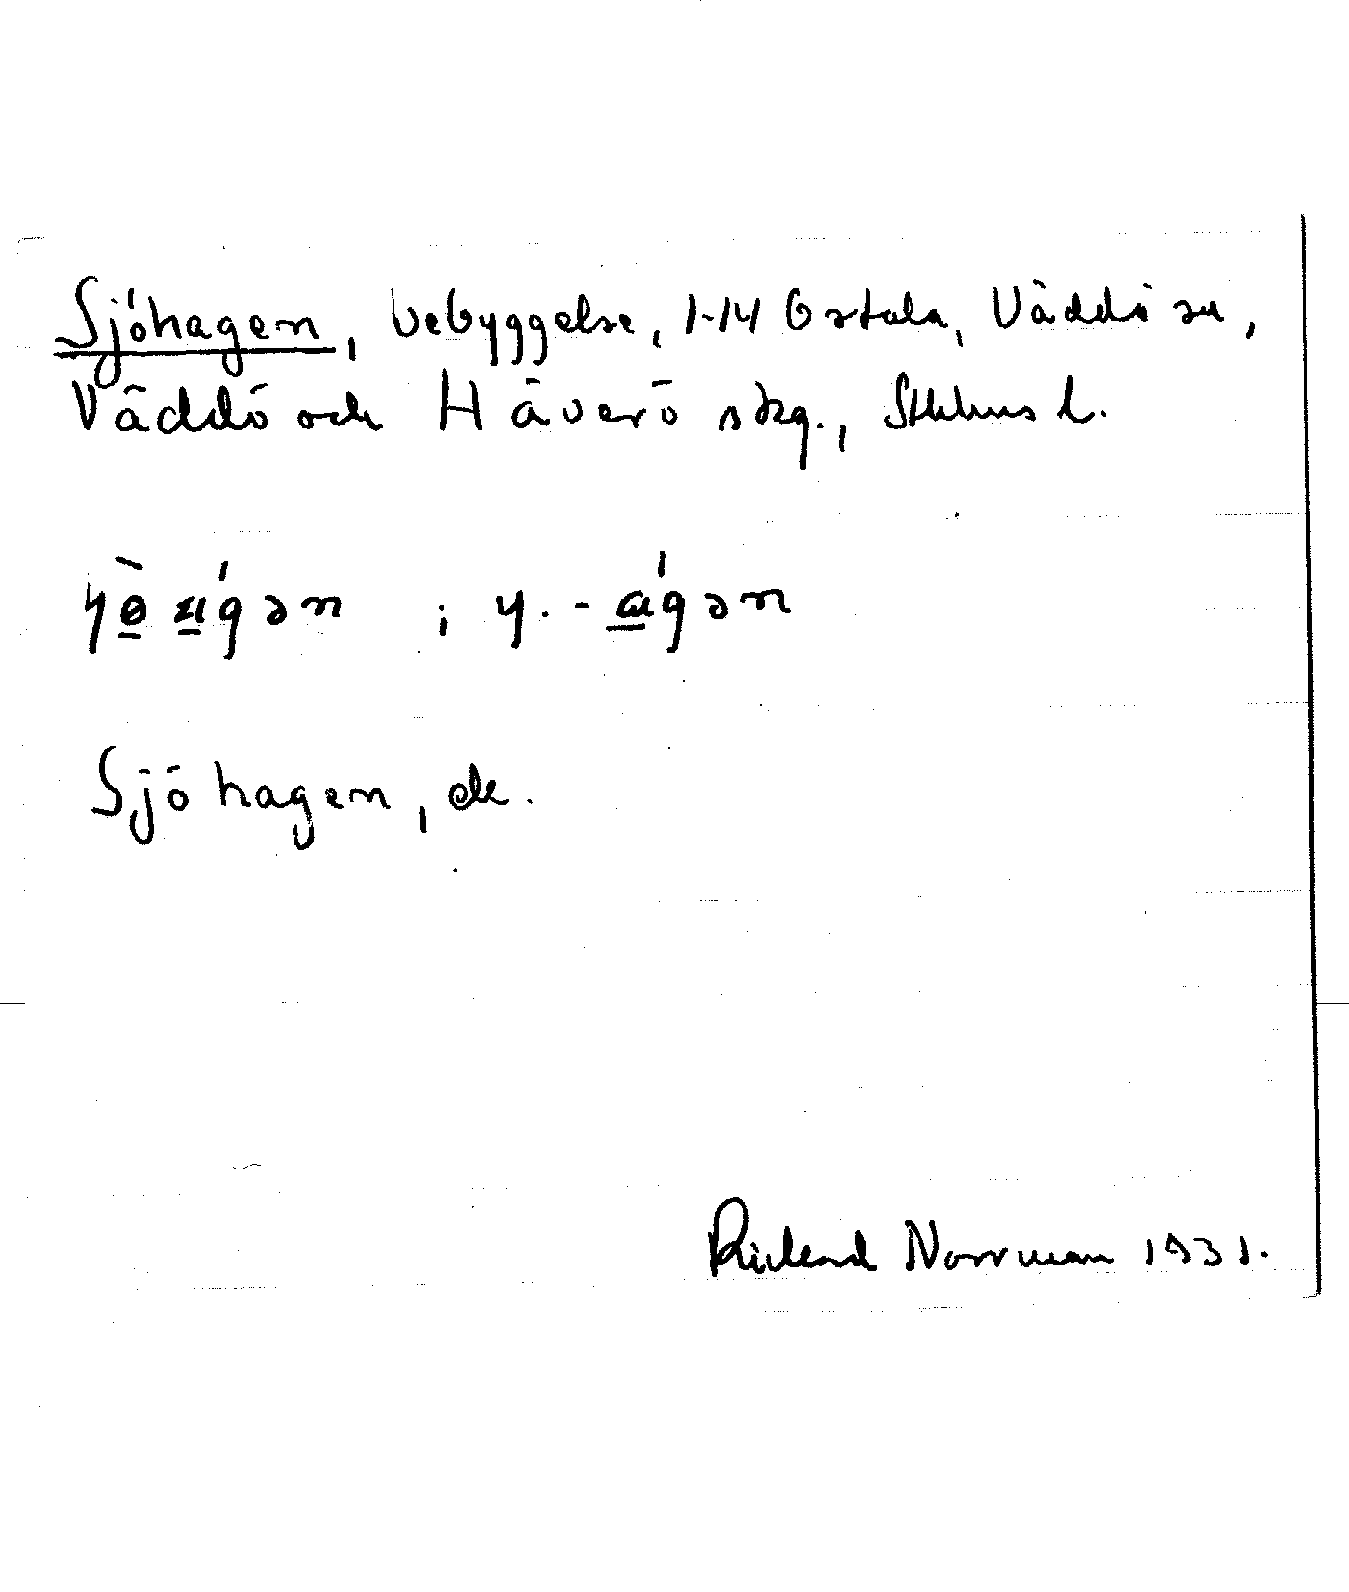 Sjöhagen, bebyggelse, 1-14 Gåstala, Väddö sn,
Väddö och Häverö skg., Sthlms l.
Sjöhagen, de.
Rickard Norrman 1931.